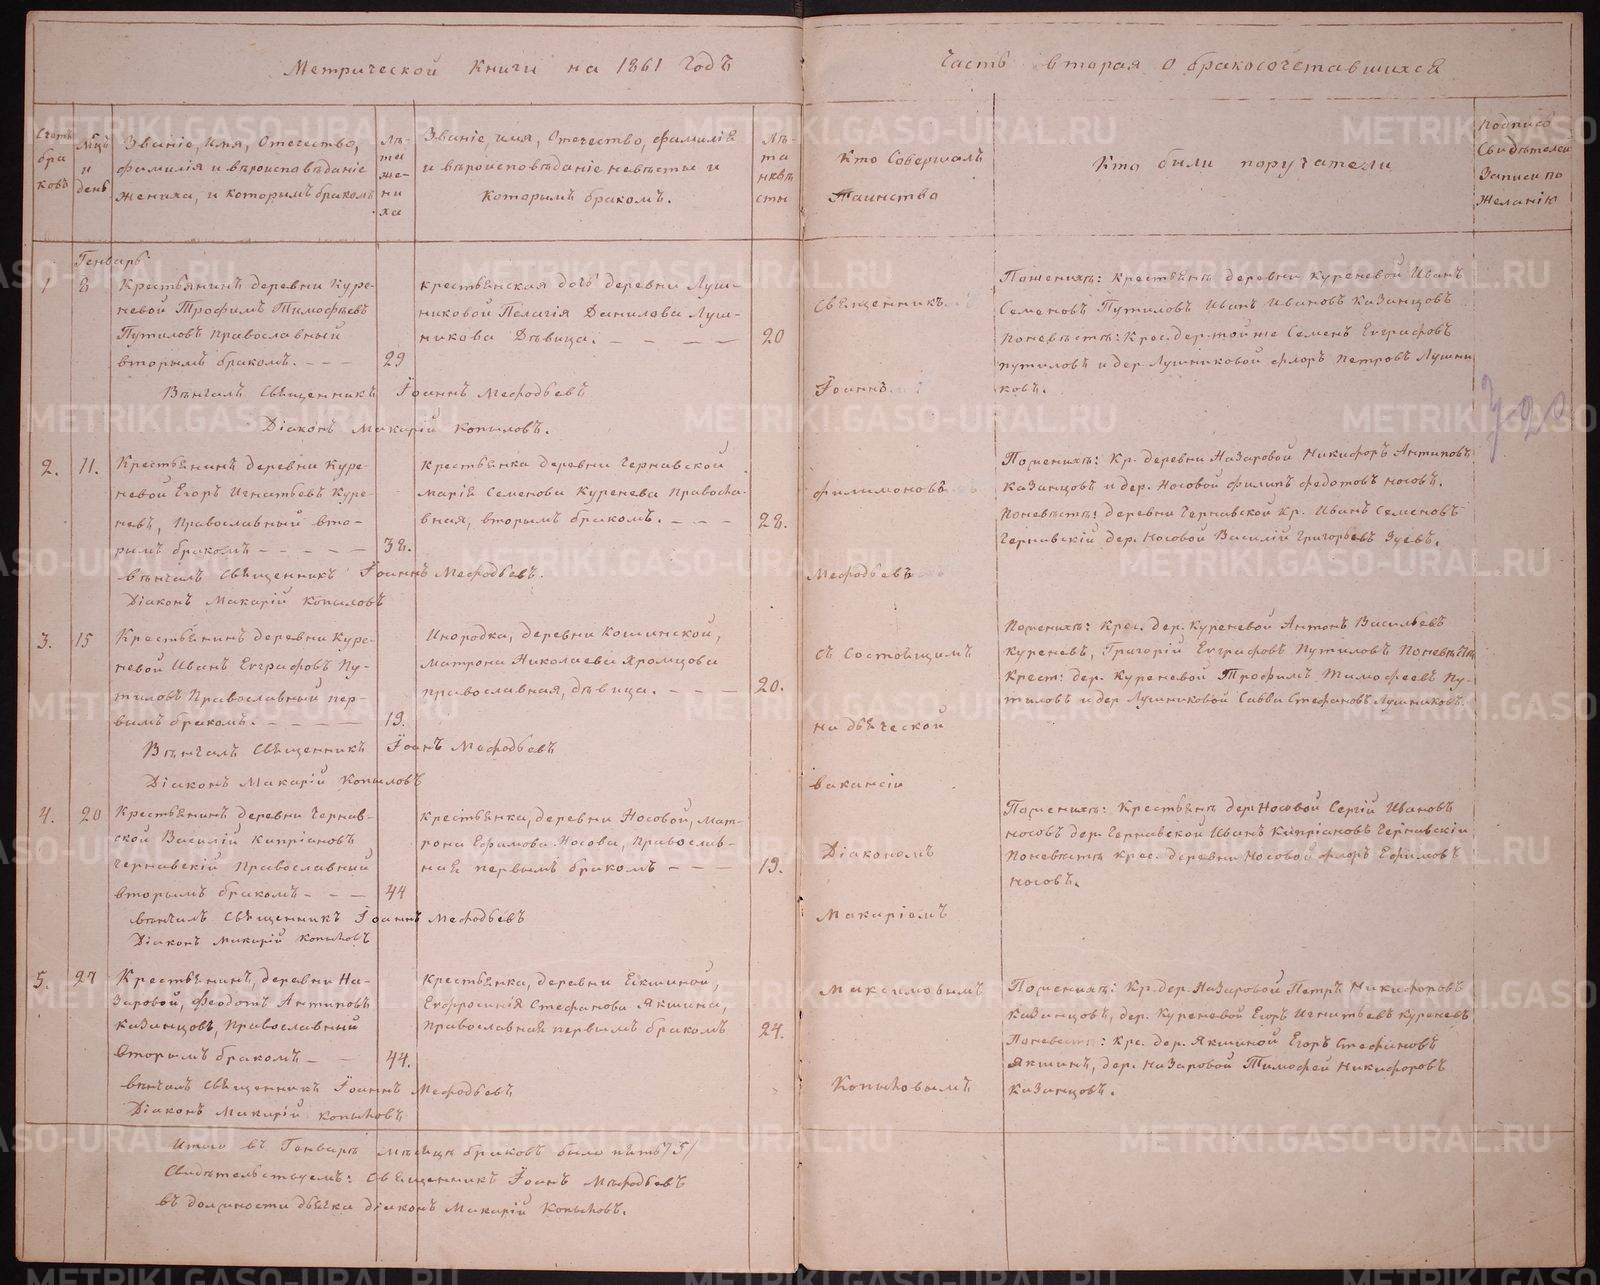 Метрической Книги на 1861 Годъ
Часть вторая о бракосочетавшихся
Счетъ браковъ
Мѣсяцъ и день
Званіе, Имя, Отечество,
фамилія и вѣроисповѣданіе
жениха, и которымъ бракомъ
Лѣта жениха
Званіе, имя, Отечество, фамилія
и вѣроисповѣданіе невѣсты и
которымъ бракомъ.
Лѣта невѣсты
Кто Совершалъ
Таинство
Кто были поручатели
Подпись
Свидѣтелей
Записи по
желанію
Генварь
1
8
Крестьянинъ деревни Куре-
невой Трофимъ Тимофѣевъ
Путиловъ православный
вторымъ бракомъ. - - -
29
крестьянская дочь деревни Луш-
никовой Пелагія Данилова Луш-
никова Дѣвица. - - - -
20
Вѣнчалъ Священникъ Іоаннъ Мефодьевъ
Діаконъ Макарій Копыловъ.
Поженихѣ: крестьянъ деревни куреневой Иванъ
Семеновъ Путиловъ Иванъ Ивановъ Казанцовъ
Поневѣстѣ: Крес. дер. той же Семенъ Евграфовъ
путиловъ и дер. Лушниковой флоръ Петровъ Лушни
ковъ.
2.
11.
Крестьянинъ деревни Куре-
невой Егоръ Игнатьевъ Куре-
невъ, Православный вто-
рымъ бракомъ - - - - -
38.
крестьянка деревни Чернавской
Марія Семенова Куренева Правосла-
вная, вторымъ бракомъ. - - -
28.
вѣнчалъ Священникъ Іоаннъ Мефодьевъ.
Діаконъ Макарій Копыловъ
Поженихѣ: Кр. деревни Назаровой Никифоръ Антиповъ
Казанцовъ и дер. Носовой филипъ федотовъ носовъ.
Поневѣстѣ: деревни Чернавской Кр. Иванъ Семеновъ
Чернавскій дер. Носовой Василій Григорьевъ Зуевъ.
3.
15
Крестьянинъ деревни Куре-
невой Иванъ Евграфовъ Пу-
тиловъ Православный пер-
вымъ бракомъ. - - - -
19.
Инородка, деревни Кошинской,
Матрона Николаева Яромцова
православная, дѣвица. - - -
20.
Вѣнчалъ Священникъ Іоанъ Мефодьевъ
Діаконъ Макарій Копыловъ
Поженихѣ: Крес. дер. Куреневой Антонъ Васильевъ
куреневъ, Григорій Евграфовъ Путиловъ Поневѣстѣ
Крест: дер. Куреневой Трофимъ Тимофеевъ Пу-
тиловъ и дер Лушниковой Савва Стефановъ Лушниковъ.
4.
20
Крестьянинъ деревни Чернав-
ской Василій Кипріановъ
Чернавскій Православный
вторымъ бракомъ - - -
44
крестьянка, деревни Носовой, Мат-
рона Ефимова Носова, Православ-
ная первымъ бракомъ - - -
19.
вѣнчалъ Священникъ Іоаннъ Мефодьевъ
Діаконъ Макарій Копыловъ
Поженихѣ: Крестьянъ дер. Носовой Сергій Ивановъ
носовъ дер. Чернавской Иванъ Кипріановъ Чернавскій
Поневѣстѣ крес. деревни Носовой флоръ Ефимовъ
носовъ.
5.
27
Крестьянинъ, деревни На-
заровой, Феодотъ Антиповъ
Казанцовъ, Православный
вторымъ бракомъ - -
44.
крестьянка, деревни Екшиной,
Евфросинія Стефанова Якшина,
Православная первымъ бракомъ
24.
вѣнчалъ Священникъ Іоаннъ Мефодьевъ
Діаконъ Макарій Копыловъ
Поженихѣ: Кр. дер. Назаровой Петръ Никифоровъ
казанцовъ, дер. Куреневой Егоръ Игнатьевъ куреневъ
Поневѣстѣ: крс. дер. Якшиной Егоръ Стефановъ
Якшинъ, дер. назаровой Тимофей Никифоровъ
казанцовъ.
Священникъ
Іоаннъ
филимоновъ
Мефодьевъ
съ состоящимъ
на дьяческой
вакансіи
Діакономъ
Макаріемъ
Максимовымъ
Копыловымъ
Итого въ Генварѣ мѣсяцѣ браковъ было пять /5/
Свидѣтельствуемъ: Священникъ Іоанъ Мефодьевъ
въ должности дьячка діаконъ Макарій Копыловъ.
METRIKI.GASO-URAL.RU